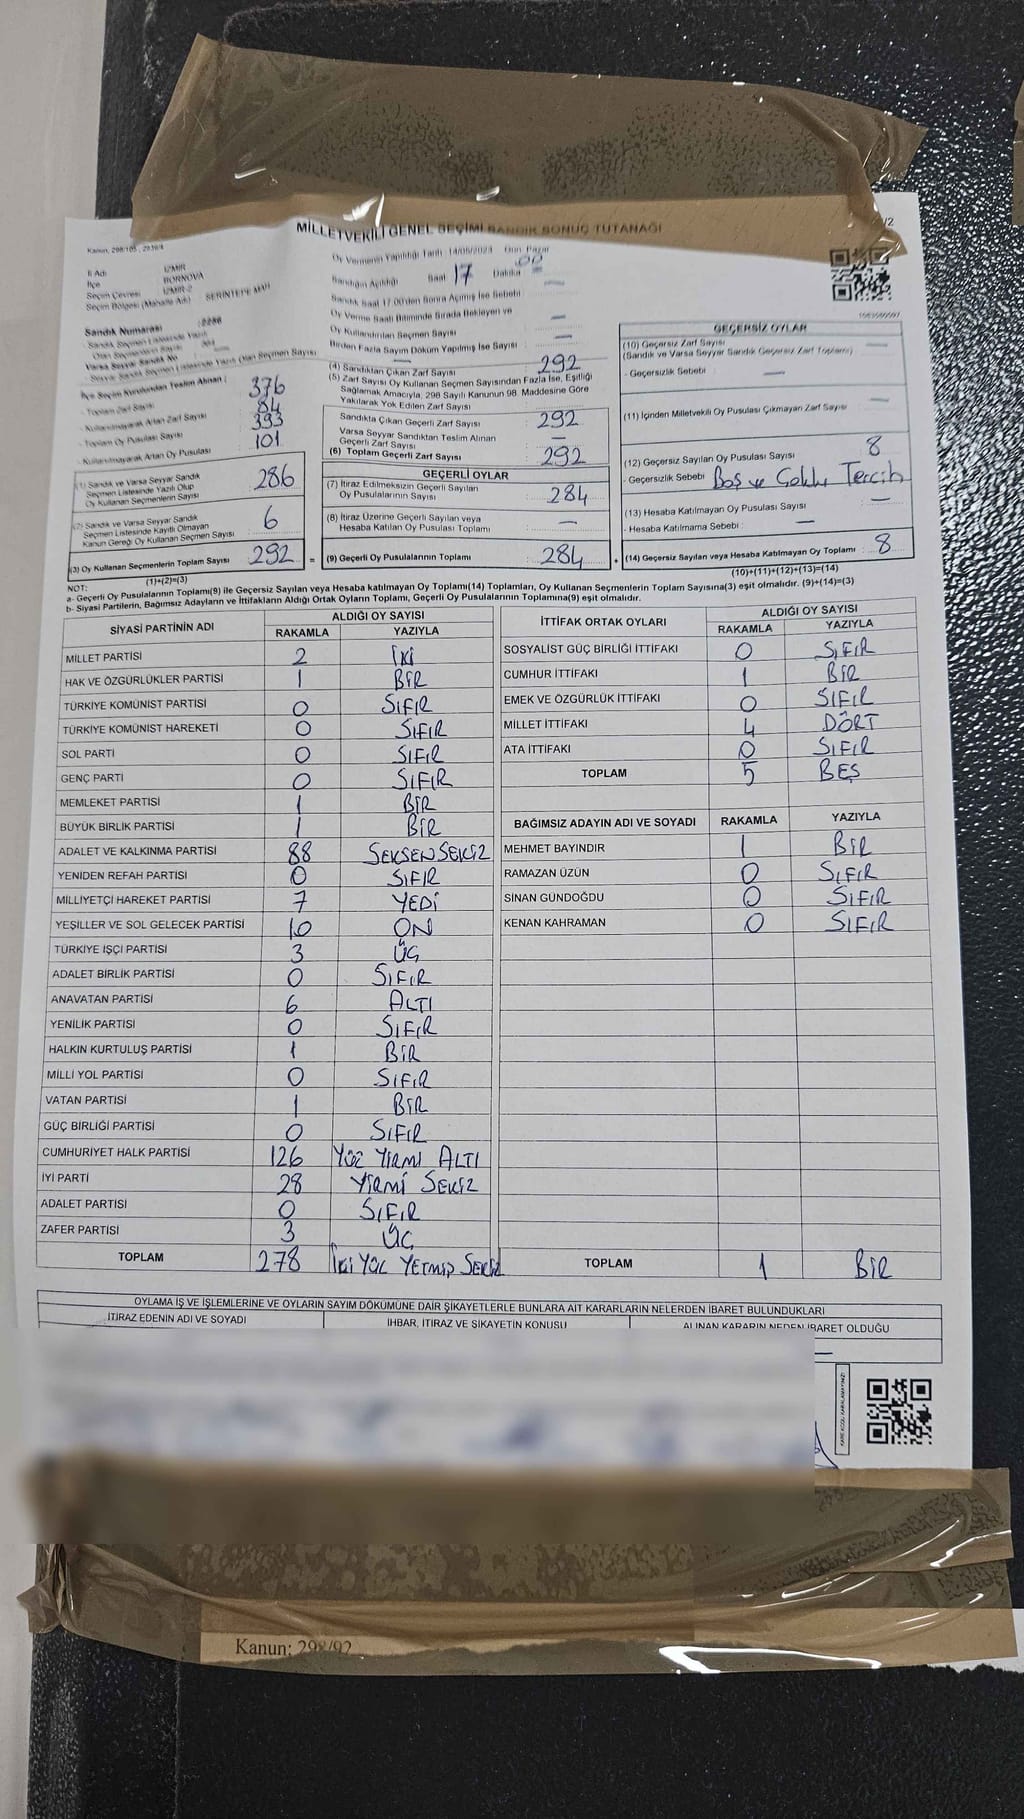 MİLLETVEKİLİ GENEL SEÇİMİ SANDIK SONUÇ TUTANAĞI
/2
Kanun, 298/105, 2839/4
İl Adı İZMİR
İlçe BORNOVA
Seçim Çevresi İZMİR-2
Seçim Bölgesi (Mahalle Adı) SERİNTEPE MAH
Sandık Numarası : 2286
Sandık Seçmen Listesinde Yazılı
Olan Seçmenlerin Sayısı
Varsa Seyyar Sandık No
- Seyyar Sandık Seçmen Listesinde Yazılı Olan Seçmen Sayısı
İlçe Seçim Kurulundan Teslim Alınan :
- Toplam Zarf Sayısı 376
- Kullanılmayarak Artan Zarf Sayısı 84
- Toplam Oy Pusulası Sayısı 393
- Kullanılmayarak Artan Oy Pusulası 101
(1) Sandık ve Varsa Seyyar Sandık
Seçmen Listesinde Yazılı Olup
Oy Kullanan Seçmenlerin Sayısı 286
(2) Sandık ve Varsa Seyyar Sandık
Seçmen Listesinde Kayıtlı Olmayan
Kanun Gereği Oy Kullanan Seçmen Sayısı 6
(3) Oy Kullanan Seçmenlerin Toplam Sayısı 292 =
(1)+(2)=(3)
Oy Vermenin Yapıldığı Tarih : 14/05/2023 Gün Pazar
Sandığın Açıldığı Saat 17 Dakika 00
Sandık Saat 17.00'den Sonra Açılmış İse Sebebi —
Oy Verme Saati Bitiminde Sırada Bekleyen ve
Oy Kullandırılan Seçmen Sayısı —
Birden Fazla Sayım Döküm Yapılmış İse Sayısı —
(4) Sandıktan Çıkan Zarf Sayısı : 292
(5) Zarf Sayısı Oy Kullanan Seçmen Sayısından Fazla İse, Eşitliği
Sağlamak Amacıyla, 298 Sayılı Kanunun 98. Maddesine Göre
Yakılarak Yok Edilen Zarf Sayısı :
Sandıkta Çıkan Geçerli Zarf Sayısı : 292
Varsa Seyyar Sandıktan Teslim Alınan
Geçerli Zarf Sayısı : —
(6) Toplam Geçerli Zarf Sayısı : 292
GEÇERLİ OYLAR
(7) İtiraz Edilmeksizin Geçerli Sayılan
Oy Pusulalarının Sayısı : 284
(8) İtiraz Üzerine Geçerli Sayılan veya
Hesaba Katılan Oy Pusulası Toplamı : —
(9) Geçerli Oy Pusulalarının Toplamı : 284 +
GEÇERSİZ OYLAR
(10) Geçersiz Zarf Sayısı —
(Sandık ve Varsa Seyyar Sandık Geçersiz Zarf Toplamı)
- Geçersizlik Sebebi : —
(11) İçinden Milletvekili Oy Pusulası Çıkmayan Zarf Sayısı —
(12) Geçersiz Sayılan Oy Pusulası Sayısı : 8
- Geçersizlik Sebebi : Boş ve Çoklu Tercih
(13) Hesaba Katılmayan Oy Pusulası Sayısı —
- Hesaba Katılmama Sebebi : —
(14) Geçersiz Sayılan veya Hesaba Katılmayan Oy Toplamı : 8
(10)+(11)+(12)+(13)=(14)
NOT:
a- Geçerli Oy Pusulalarının Toplamı(9) ile Geçersiz Sayılan veya Hesaba katılmayan Oy Toplamı(14) Toplamları, Oy Kullanan Seçmenlerin Toplam Sayısına(3) eşit olmalıdır. (9)+(14)=(3)
b- Siyasi Partilerin, Bağımsız Adayların ve İttifakların Aldığı Ortak Oyların Toplamı, Geçerli Oy Pusulalarının Toplamına(9) eşit olmalıdır.
SİYASİ PARTİNİN ADI ALDIĞI OY SAYISI
RAKAMLA YAZIYLA
MİLLET PARTİSİ 2 İKİ
HAK VE ÖZGÜRLÜKLER PARTİSİ 1 BİR
TÜRKİYE KOMÜNİST PARTİSİ 0 SIFIR
TÜRKİYE KOMÜNİST HAREKETİ 0 SIFIR
SOL PARTİ 0 SIFIR
GENÇ PARTİ 0 SIFIR
MEMLEKET PARTİSİ 1 BİR
BÜYÜK BİRLİK PARTİSİ 1 BİR
ADALET VE KALKINMA PARTİSİ 88 SEKSEN SEKİZ
YENİDEN REFAH PARTİSİ 0 SIFIR
MİLLİYETÇİ HAREKET PARTİSİ 7 YEDİ
YEŞİLLER VE SOL GELECEK PARTİSİ 10 ON
TÜRKİYE İŞÇİ PARTİSİ 3 ÜÇ
ADALET BİRLİK PARTİSİ 0 SIFIR
ANAVATAN PARTİSİ 6 ALTI
YENİLİK PARTİSİ 0 SIFIR
HALKIN KURTULUŞ PARTİSİ 1 BİR
MİLLİ YOL PARTİSİ 0 SIFIR
VATAN PARTİSİ 1 BİR
GÜÇ BİRLİĞİ PARTİSİ 0 SIFIR
CUMHURİYET HALK PARTİSİ 126 YÜZ YİRMİ ALTI
İYİ PARTİ 28 YİRMİ SEKİZ
ADALET PARTİSİ 0 SIFIR
ZAFER PARTİSİ 3 ÜÇ
TOPLAM 278 İKİ YÜZ YETMİŞ SEKİZ
İTTİFAK ORTAK OYLARI ALDIĞI OY SAYISI
RAKAMLA YAZIYLA
SOSYALİST GÜÇ BİRLİĞİ İTTİFAKI 0 SIFIR
CUMHUR İTTİFAKI 1 BİR
EMEK VE ÖZGÜRLÜK İTTİFAKI 0 SIFIR
MİLLET İTTİFAKI 4 DÖRT
ATA İTTİFAKI 0 SIFIR
TOPLAM 5 BEŞ
BAĞIMSIZ ADAYIN ADI VE SOYADI RAKAMLA YAZIYLA
MEHMET BAYINDIR 1 BİR
RAMAZAN ÜZÜN 0 SIFIR
SİNAN GÜNDOĞDU 0 SIFIR
KENAN KAHRAMAN 0 SIFIR
TOPLAM 1 BİR
OYLAMA İŞ VE İŞLEMLERİNE VE OYLARIN SAYIM DÖKÜMÜNE DAİR ŞİKAYETLERLE BUNLARA AİT KARARLARIN NELERDEN İBARET BULUNDUKLARI
İTİRAZ EDENİN ADI VE SOYADI İHBAR, İTİRAZ VE ŞİKAYETİN KONUSU ALINAN KARARIN NEDEN İBARET OLDUĞU
KARE KODU KARALAMAYINIZ!
Kanun: 298/92